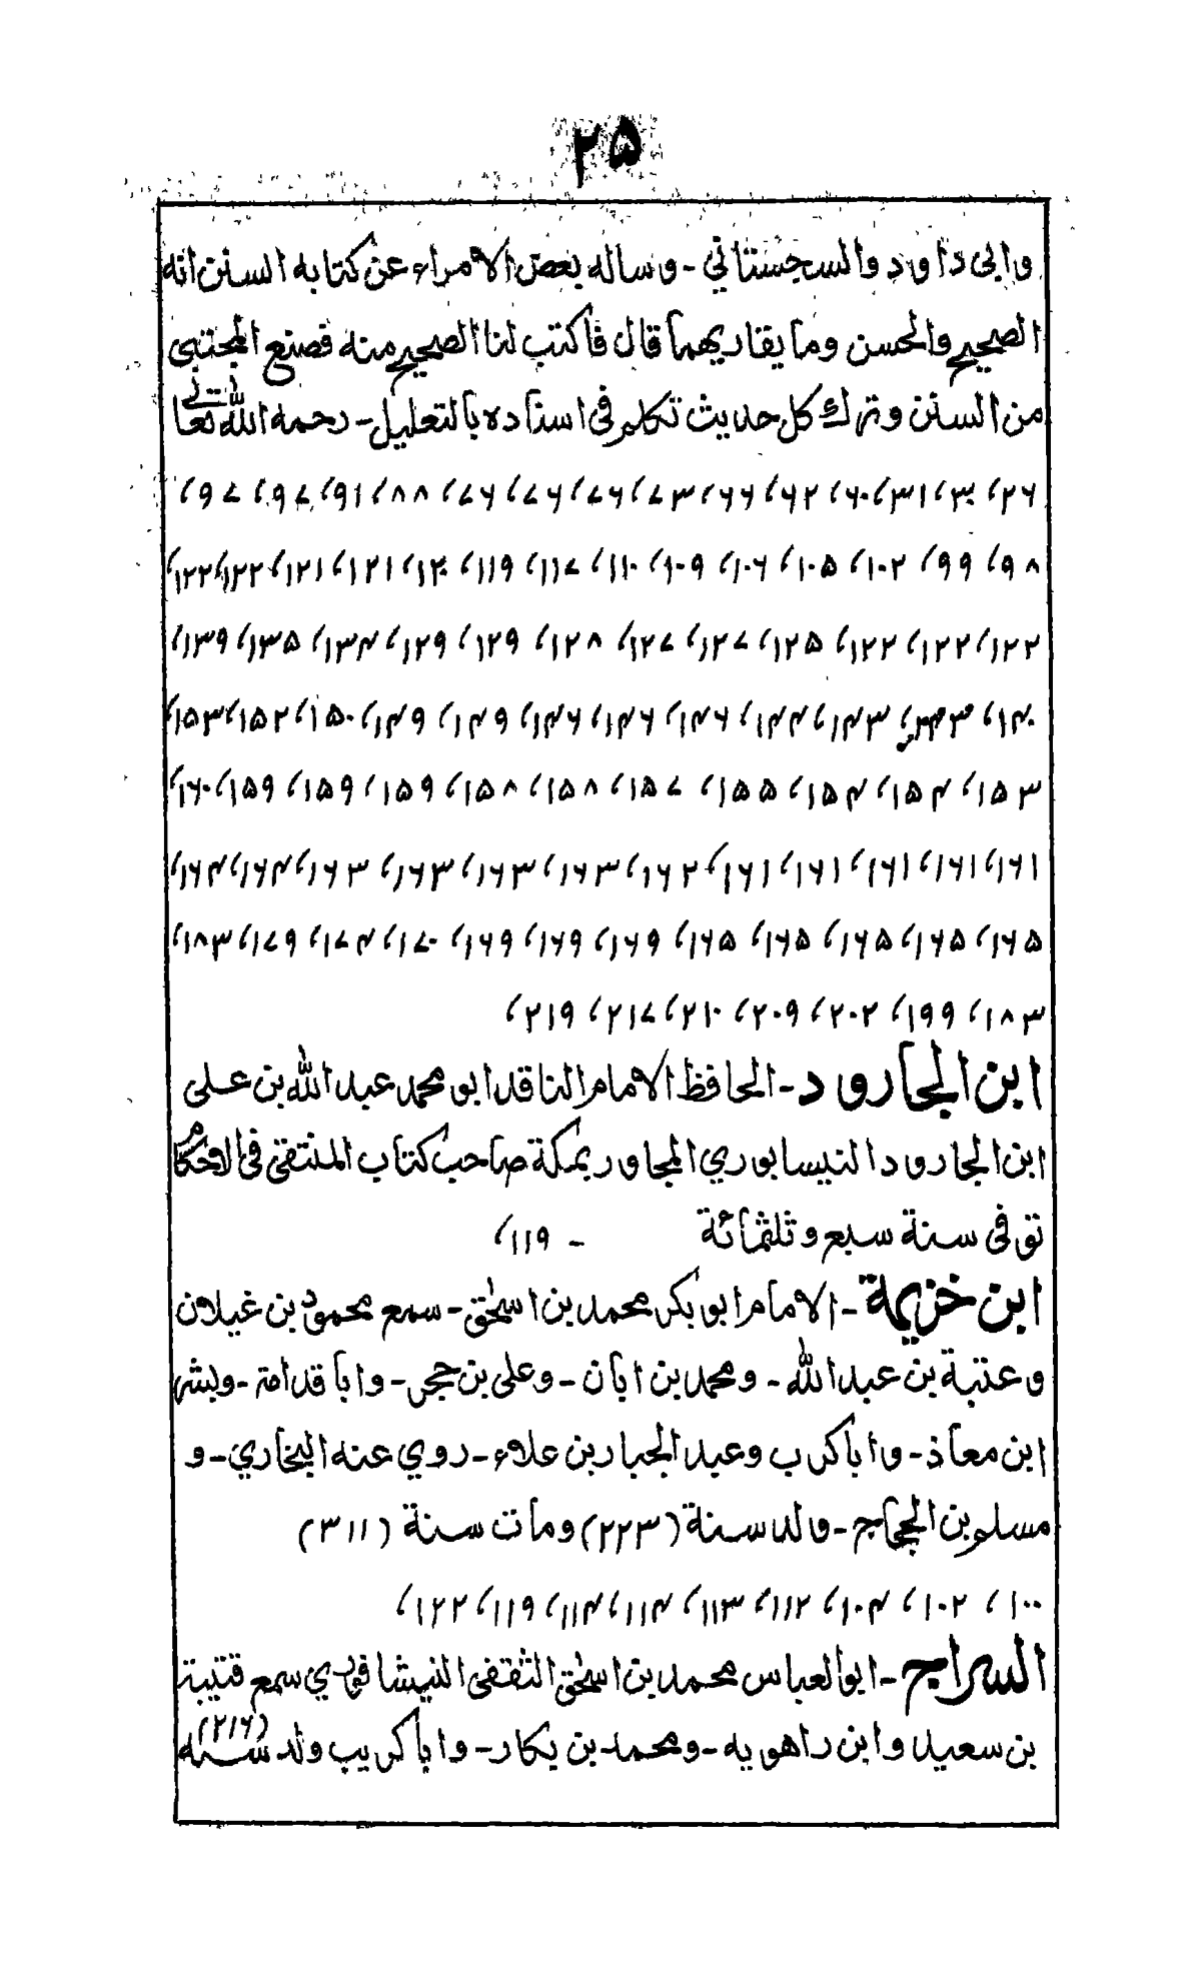 ٢٥
وابى داود والسجستاني - وساله بعض الامراء عن كتابه السنن انه
الصحيح والحسن وما يقاربهما قال فاكتب لنا الصحيح منه فصنع المجتبى
من السنن وترك كل حديث تكلم فى اسناده بالتعليل - رحمه الله تعالى
٢٦، ٣٠، ٣١، ٦٠، ٦٢، ٦٦، ٧٣، ٧٦، ٧٦، ٧٦، ٨٨، ٩١، ٩٧، ٩٧،
٩٨، ٩٩، ١٠٢، ١٠٥، ١٠٦، ١٠٩، ١١٠، ١١٧، ١١٩، ١٢٠، ١٢١، ١٢١، ١٢٢، ١٢٢،
١٢٢، ١٢٢، ١٢٢، ١٢٥، ١٢٧، ١٢٧، ١٢٨، ١٢٩، ١٢٩، ١٣٤، ١٣٥، ١٣٩،
١٤٠، ١٤٣، ١٤٣، ١٤٤، ١٤٦، ١٤٦، ١٤٦، ١٤٩، ١٤٩، ١٥٠، ١٥٢، ١٥٣،
١٥٣، ١٥٤، ١٥٤، ١٥٥، ١٥٧، ١٥٨، ١٥٨، ١٥٩، ١٥٩، ١٥٩، ١٦٠،
١٦١، ١٦١، ١٦١، ١٦١، ١٦١، ١٦٢، ١٦٣، ١٦٣، ١٦٣، ١٦٣، ١٦٤، ١٦٤،
١٦٥، ١٦٥، ١٦٥، ١٦٥، ١٦٥، ١٦٩، ١٦٩، ١٦٩، ١٧٠، ١٧٤، ١٧٩، ١٨٣،
١٨٣، ١٩٩، ٢٠٢، ٢٠٩، ٢١٠، ٢١٧، ٢١٩،
ابن الجارود - الحافظ الامام الناقد ابو محمد عبد الله بن على
ابن الجارود النيسابوري المجاور بمكة صاحب كتاب المنتقى فى الاحكام
توفى سنة سبع وثلثمائة - ١١٩،
ابن خزيمة - الامام ابو بكر محمد بن اسحٰق - سمع محمود بن غيلان
وعتبة بن عبد الله - ومحمد بن ابان - وعلى بن حجر - وابا قدامة - وبشر
ابن معاذ - وابا كرب وعبد الجبار بن علاء - روي عنه البخاري - و
مسلم بن الحجاج - ولد سنة (٢٢٣) ومات سنة (٣١١)
١٠٠، ١٠٢، ١٠٤، ١١٢، ١١٣، ١١٤، ١١٤، ١١٩، ١٢٢،
السراج - ابو العباس محمد بن اسحٰق الثقفى النيشافوري سمع قتيبة
بن سعيد وابن راهويه - ومحمد بن بكار - وابا كريب ولد سنه (٢١٦)